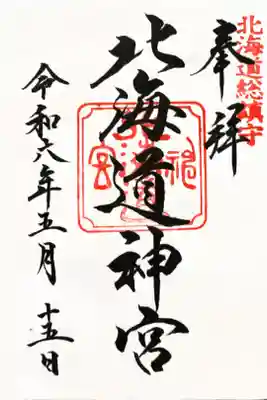 北海道総鎮守
奉拝
北海道神宮
令和六年五月十五日